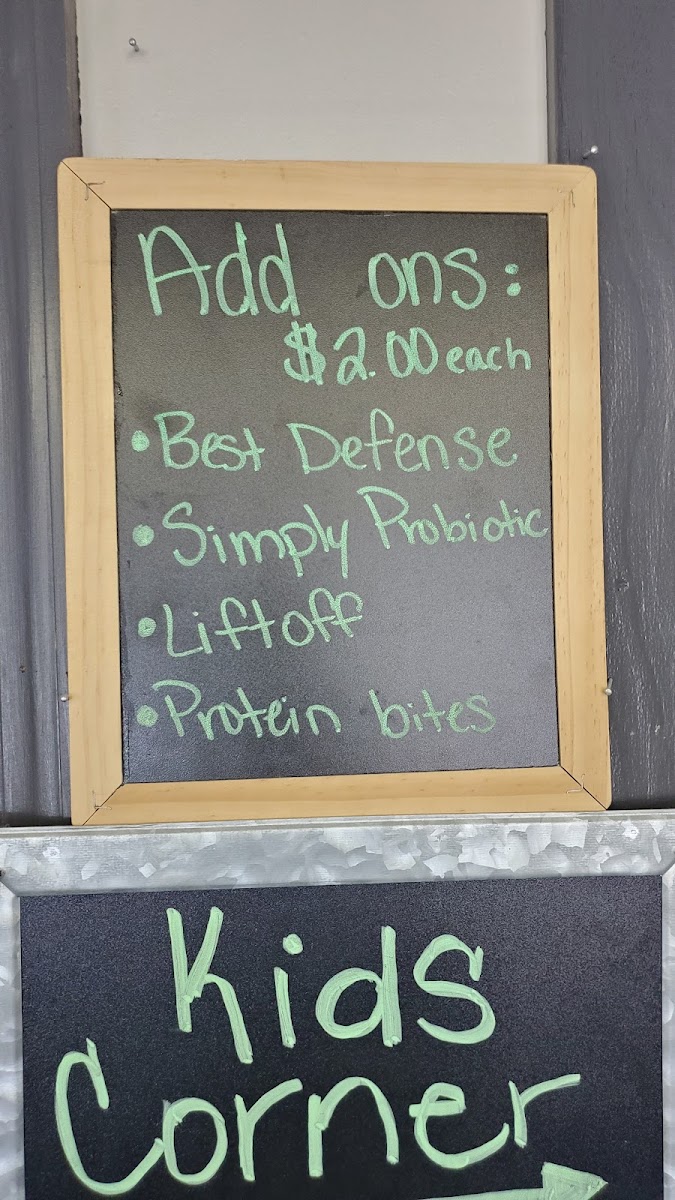 Add ons:
$2.00 each
• Best Defense
• Simply Probiotic
• Liftoff
• Protein bites
Kids
Corner